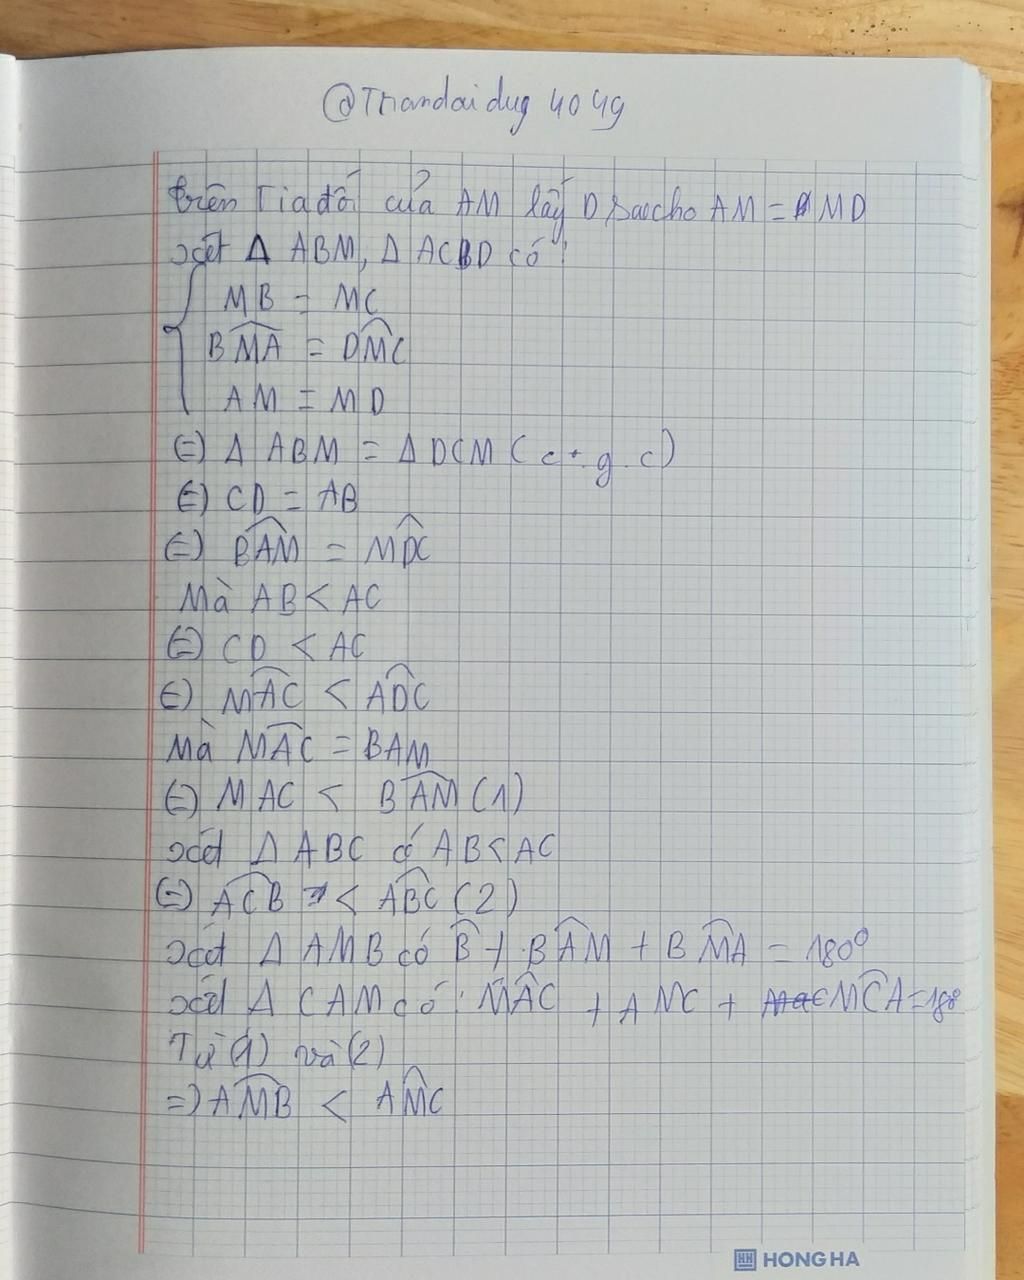 @Thandaidug 4049
trên Tia đối của AM lấy D sao cho AM = MD
xét Δ ABM, Δ ACBD có :
MB = MC
BMA = DMC
AM = MD
(=) Δ ABM = Δ DCM ( c . g . c )
(=) CD = AB
(=) BAM = MDC
Mà AB < AC
(=) CD < AC
(=) MAC < ADC
Mà MAC = BAM
(=) MAC < BAM (1)
xét Δ ABC có AB < AC
(=) ACB < ABC (2)
xét Δ AMB có B + BAM + BMA = 180°
xét Δ CAM có : MAC + AMC + MCA = 180
Từ (1) và (2)
=) AMB < AMC
HH HONG HA